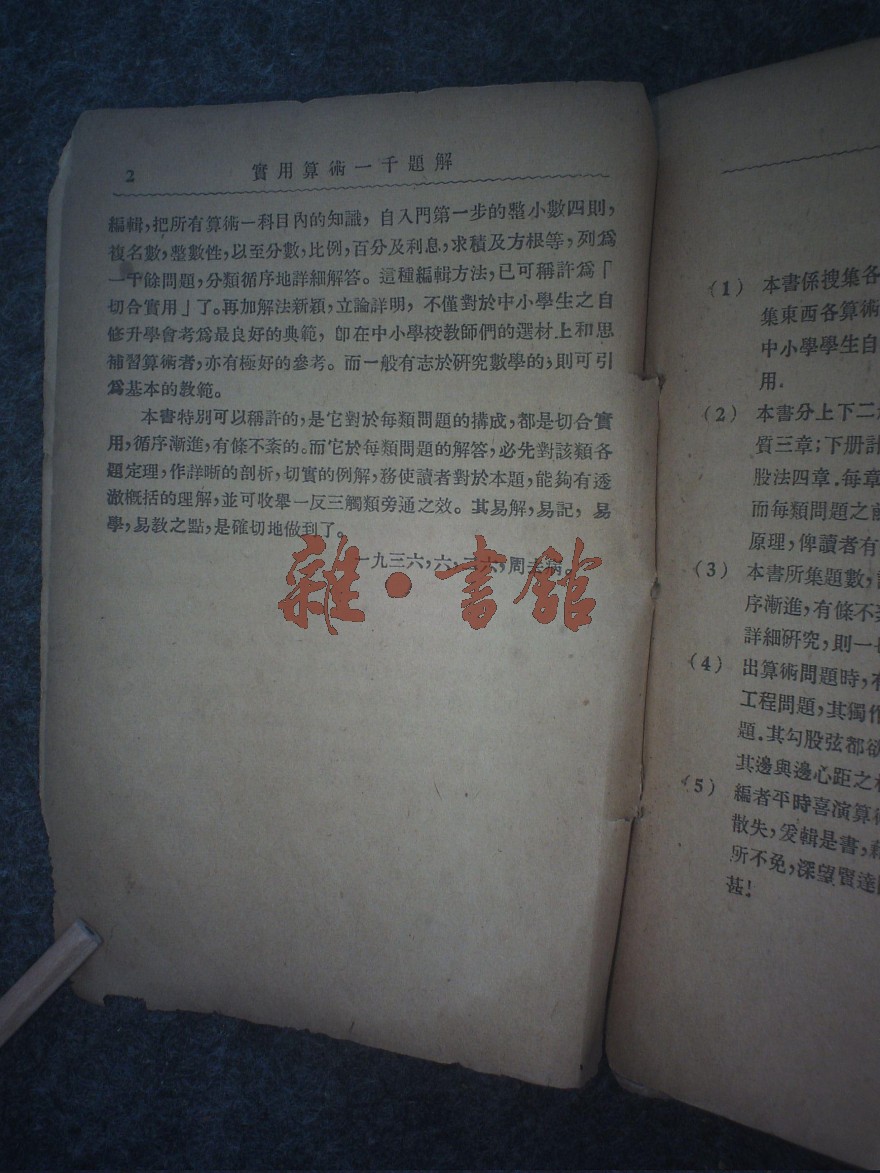 2
實用算術一千題解
編輯，把所有算術一科目內的知識，自入門第一步的整小數四則，
複名數，整數性，以至分數，比例，百分及利息，求積及方根等，列爲
一千餘問題，分類循序地詳細解答。這種編輯方法，已可稱許爲「
切合實用」了。再加解法新穎，立論詳明，不僅對於中小學生之自
修升學會考爲最良好的典範，卽在中小學校教師們的選材上和思
補習算術者，亦有極好的參考。而一般有志於研究數學的，則可引
爲基本的教範。
本書特別可以稱許的，是它對於每類問題的搆成，都是切合實
用，循序漸進，有條不紊的。而它於每類問題的解答，必先對該類各
題定理，作詳晰的剖析，切實的例解，務使讀者對於本題，能夠有透
澈概括的理解，並可收舉一反三觸類旁通之效。其易解，易記，易
學，易教之點，是確切地做到了。
一九三六，六，二六，周
雜·書館
(1) 本書係搜集各
集東西各算術
中小學學生自
用.
(2) 本書分上下二
質三章；下册計
股法四章.每章
而每類問題之
原理，俾讀者有
(3) 本書所集題數，
序漸進，有條不紊
詳細研究，則一
(4) 出算術問題時，
工程問題，其獨作
題.其勾股弦都
其邊與邊心距之
(5) 編者平時喜演算
散失，爰輯是書，
所不免，深望賢達
甚！